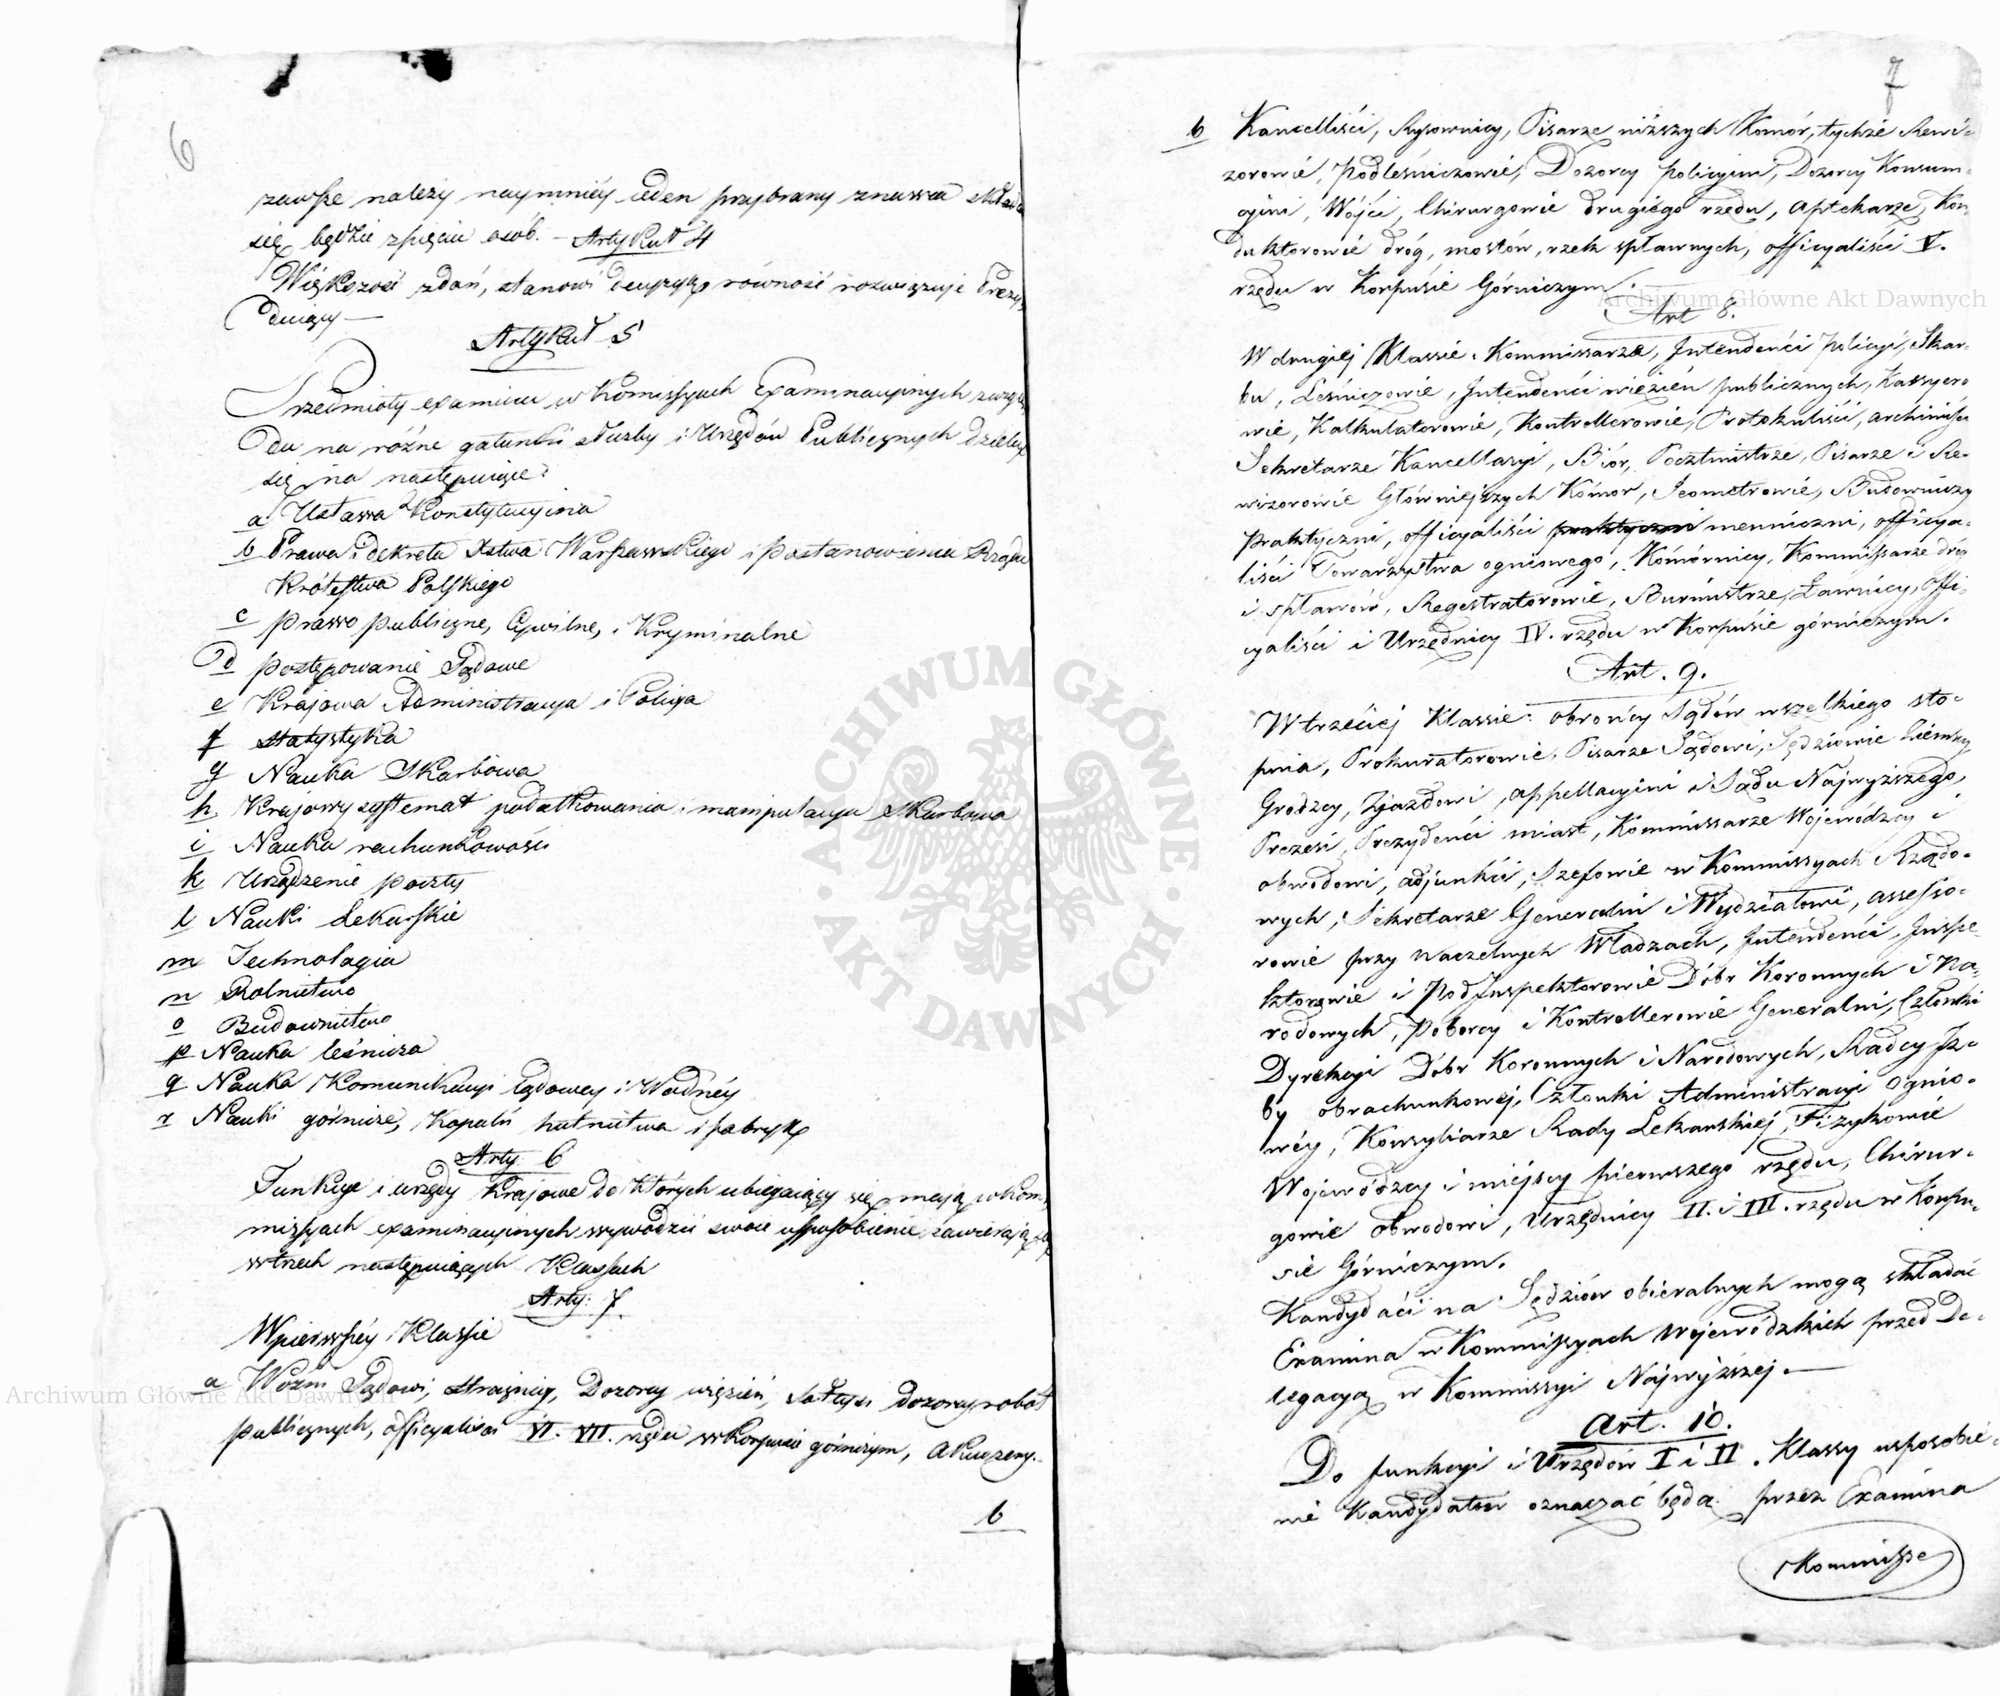 6
zawsze należy naymniéy ieden przybrany znawca składać
się będzie z pięciu osób. — Artykuł 4
Większość zdań, stanowi decyzyą równość rozwiązuje Prezy-
duiący —
Artykuł 5
Przedmioty examinu w Kommissyach Examinacyinych zwzglę-
du na różne gatunki służby i Urzędów Publicznych dzielą
się na następuiące:
a Ustawa Konstytucyina
b Prawa i dekreta Xstwa Warszawskiego i postanowienia Rządu
Królestwa Polskiego
c prawo publiczne, Cywilne, i Kryminalne
d postępowanie Sądowe
e Krajowa Administracya i Policya
f Statystyka
g Nauka Skarbowa
h Krajowy systemat podatkowania i manipulacya Skarbowa
i Nauka rachunkowości
k Urządzenie poczty
l Nauki Lekarskie
m Technologia
n Rolnictwo
o Budownictwo
p Nauka leśnicza
q Nauka Komunikacyi Lądowey i Wodnéy
r Nauki górnicze, Kopalń hutnictwa i fabryk
Arty 6
Funkcye i urzędy Krajowe do których ubiegaiący się maią w Kom-
missyach examinacyinych wywodzić swoie usposobienie zawieraią się
w trzech następuiących Klassach
Arty: 7
W pierwszéy Klassie
a Woźni Sądowi, strażnicy, Dozorcy więzień, Sołtysi dozorcy robot
publicznych, officyaliści VI. VII. rzędu w Korpusie górniczym, Akuszerzy.
b
7
b Kancelliści, Rysownicy, Pisarze niższych Komór, tychże Rewi-
zorowie, Podleśniczowie, Dozorcy policyini, Dozorcy Konsum-
cyini, Wójci, Chirurgowie drugiego rzędu, aptekarze, Kon-
duktorowie dróg, mostów, rzek spławnych, officyaliści V.
rzędu w Korpusie Górniczym.
Art 8.
W drugiej Klassie: Kommissarze, Intendenci policyi, Skar-
bu, Leśniczowie, Intendenci więzień publicznych, Kassyero
wie, Kalkulatorowie, Kontrollerowie, Protokuliści, archiwiści
Sekretarze Kancellaryi, Biór, Pocztmistrze, Pisarze i Re-
wizorowie Główniejszych Komor, Jeometrowie, Budowniczy
praktyczni, officyaliści praktyczni menniczni, officya-
liści Towarzystwa ogniowego, Komornicy, Kommissarze dróg
i spławów, Regestratorowie, Burmistrze, Ławnicy, offi-
cyaliści i Urzędnicy IV. rzędu w Korpusie górniczym.
Art. 9.
W trzeciej Klassie: obrońcy Sądów wszelkiego sto-
pnia, Prokuratorowie, Pisarze Sądowi, Sędziowie Ziemscy
Grodzcy, Zjazdowi, appellacyini i Sądu Najwyższego,
Prezesi, Prezydenci miast, Kommissarze Wojewódzcy i
obwodowi, adjunkci, Szefowie w Kommissyach Rządo-
wych, Sekretarze Generalni i Wydziałowi, assesso-
rowie przy naczelnych Władzach, Intendenci, Inspe-
ktorowie i PodInspektorowie Dóbr Koronnych i Na-
rodowych, Poborcy i Kontrollerowie Generalni, Członki
Dyrekcyi Dóbr Koronnych i Narodowych, Radcy Iz-
by obrachunkowej, Członki Administracyi Ognio-
wéy, Konsyliarze Rady Lekarskiej, Fizykowie
Wojewódzcy i miejscy pierwszego rzędu, Chirur-
gowie obwodowi, Urzędnicy II. i III. rzędu w Korpu-
sie Górniczym.
Kandydaci na Sędziów obieralnych mogą składać
Examina w Kommissyach Wojewódzkich przed De-
legacyą w Kommissyi Najwyższej. —
Art. 10.
Do funkcyi i Urzędów I i II. Klassy usposobie-
nie Kandydatów oznaczać będą przez Examina
Kommissye
Archiwum Główne Akt Dawnych
Archiwum Główne Akt Dawnych
ARCHIWUM GŁÓWNE · AKT DAWNYCH ·